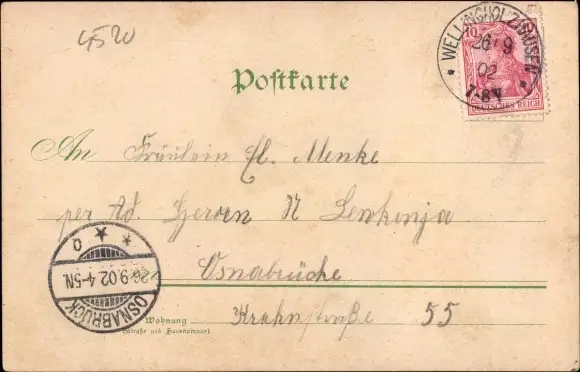 4520
WELLINGHOLZHAUSEN
26 9
02
7-8V
10
DEUTSCHES REICH
Postkarte
An Fräulein El. Menke
per Ad. Herrn N
Osnabrücke
Krahnstraße 55
OSNABRÜCK
26.9.02.4-5N.
Wohnung
(Straße und Hausnummer)